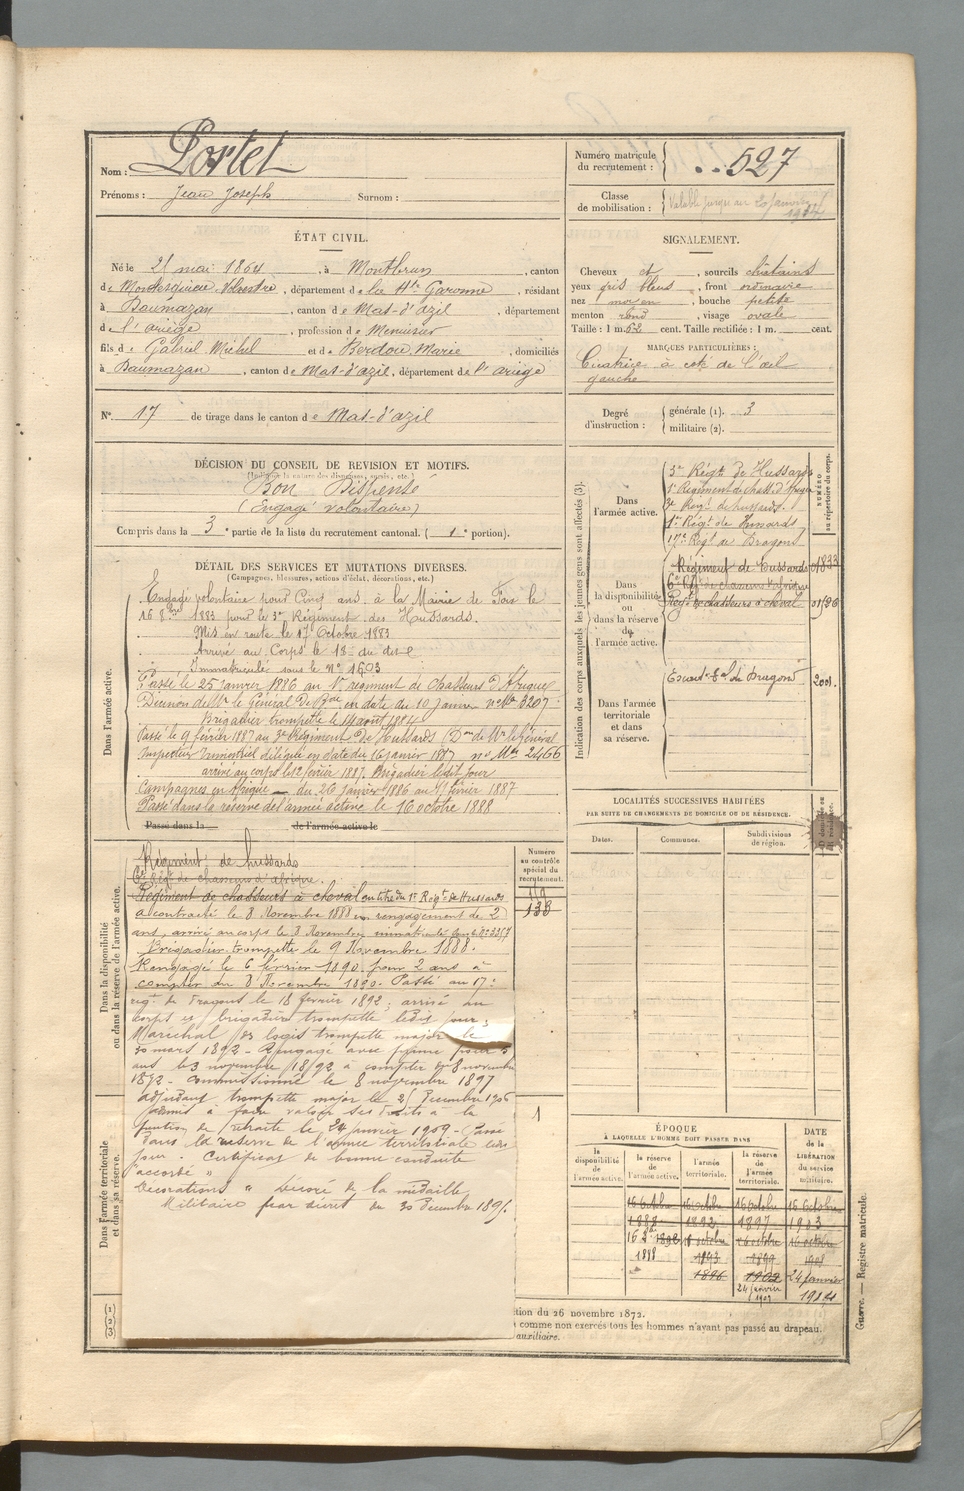 Nom : Portet
Prénoms : Jean Joseph Surnom :
Numéro matricule du recrutement : 527
Classe de mobilisation : Valable jusqu'au 20 janvier
ÉTAT CIVIL.
Né le 21 mai 1864, à Montbrun, canton
de Montesquieu-Volvestre, département de la Hte Garonne, résidant
à Daumazan, canton de Mas-d'azil, département
de l'ariège, profession de Menuisier
fils de Gabriel Michel et de Berdou Marie, domiciliés
à Daumazan, canton de Mas-d'azil, département de l'ariège
N° 17 de tirage dans le canton de Mas-d'azil
SIGNALEMENT.
Cheveux et, sourcils châtains
yeux gris bleus, front ordinaire
nez moyen, bouche petite
menton rond, visage ovale
Taille : 1 m. 62 cent. Taille rectifiée : 1 m. cent.
MARQUES PARTICULIÈRES :
Cicatrice à coté de l'œil
gauche
Degré d'instruction : générale (1). 3
militaire (2).
DÉCISION DU CONSEIL DE REVISION ET MOTIFS.
Bon Dispensé
(Engagé volontaire)
Compris dans la 3e partie de la liste du recrutement cantonal. ( 1e portion).
DÉTAIL DES SERVICES ET MUTATIONS DIVERSES.
(Campagnes, blessures, actions d'éclat, décorations, etc.)
Dans l'armée active.
Engagé volontaire pour Cinq ans à la Mairie de Foix le
16 8bre 1883 pour le 3e Régiment des Hussards.
Mis en route le 17 Octobre 1883
Arrivé au Corps le 18 du dit
Immatriculé sous le N° 1603
Passé le 25 janvier 1886 au 1er régiment de chasseurs d'Afrique
Décision de Mr le Général De Bde en date du 10 Janvier n° 3207
Brigadier trompette le 14 août 1884
Passé le 9 février 1887 au 3e Régiment de Hussards (Don de Mr le Général
Inspecteur trimestriel délégué en date du 16 janvier 1887 n° 2466
arrivé au corps le 12 février 1887. Brigadier le dit jour
Campagnes en Afrique du 26 janvier 1886 au février 1887
Passé dans la réserve de l'armée active le 16 octobre 1888
Passé dans la de l'armée active le
Dans la disponibilité ou dans la réserve de l'armée active.
Régiment de hussards
6e Régt de chasseurs d'afrique.
Régiment de chasseurs à cheval en titre du 1er Régt de Hussards
a contracté le 8 Novembre 1888 un rengagement de 2
ans, arrivé au corps le 8 Novembre, immatriculé sous le N°
Brigadier trompette le 9 Novembre 1888.
Rengagé le 6 février 1890 pour 2 ans à
compter du 8 Novembre 1890. Passé au 17e
régt de Dragons le 18 février 1892; arrivé au
corps et brigadier trompette ledit jour;
Maréchal des logis trompette major le
30 mars 1892 - Rengagé avec prime pour 5
ans le 3 novembre 1892 à compter du 8 novembre
1892 - Commissionné le 8 novembre 1897
adjudant trompette major le Décembre 1906
admis à faire valoir ses droits à la
pension de retraite le 24 janvier 1909 - Passé
dans la réserve de l'armée territoriale ledit
jour. Certificat de bonne conduite
"accordé"
Décorations " Décoré de la médaille
Militaire par décret du 30 Décembre 189
Numéro au contrôle spécial du recrutement.
138
1
Dans l'armée territoriale et dans sa réserve.
(1)
(2)
(3)
Indication des corps auxquels les jeunes gens sont affectés (3).
NUMÉRO au répertoire du corps.
Dans l'armée active.
3e Régt de Hussards
1er Régiment de chass. d'Afrique
3e Régt de hussards.
1er Régt de Hussards
17e Régt de Dragons
Dans la disponibilité ou dans la réserve de l'armée active.
Régiment de Hussards
6e Régt de chasseurs d'afrique
Régt de chasseurs à cheval
Dans l'armée territoriale et dans sa réserve.
du Dragons 2001.
LOCALITÉS SUCCESSIVES HABITÉES
PAR SUITE DE CHANGEMENTS DE DOMICILE OU DE RÉSIDENCE.
Dates. Communes. Subdivisions de région.
ÉPOQUE
À LAQUELLE L'HOMME DOIT PASSER DANS
la disponibilité de l'armée active.
la réserve de l'armée active.
l'armée territoriale.
la réserve de l'armée territoriale.
DATE de la LIBÉRATION du service militaire.
16 Octobre 16 octobre 16 Octobre 16 Octobre
1888 1892 1897 1903
1888 1893 1899
1896 1902 24 janvier
24 janvier 1914
1909
tion du 26 novembre 1872.
comme non exercés tous les hommes n'ayant pas passé au drapeau.
auxiliaire.
Guerre. — Registre matricule.